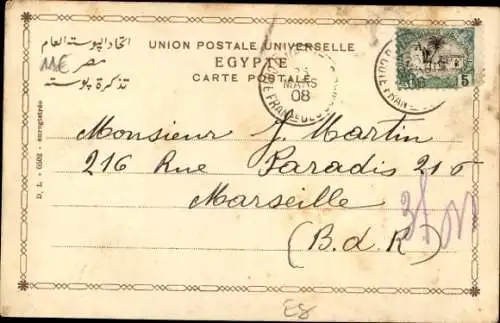 اتحاد البوستة العام
مصر
تذكرة بوستة
UNION POSTALE UNIVERSELLE
EGYPTE
CARTE POSTALE
MARS
08
5
D. L. - 0502 - enregistrée
Monsieur J. Martin
216 Rue Paradis 216
Marseille
(B.d.R)
E8